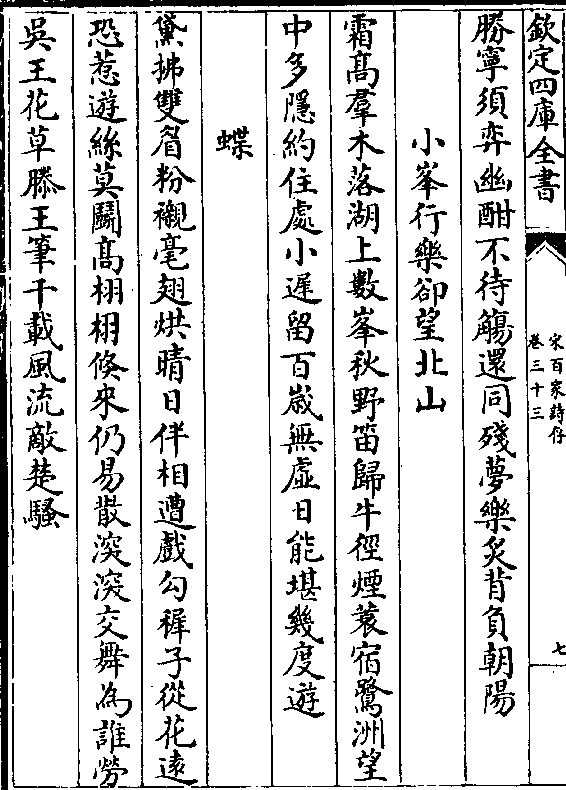 欽定四庫全書
宋百家詩存
卷三十三
七
勝寧須弈幽酣不待觴還同殘夢樂炙背負朝陽
小峯行樂卻望北山
霜髙羣木落湖上數峯秋野笛歸牛徑煙蓑宿鷺洲望
中多隱約住處小遲留百嵗無虚日能堪幾度遊
蝶
黛拂雙眉粉襯毫翅烘晴日伴相遭戲勾穉子從花逺
恐惹遊絲莫鬬髙栩栩倏來仍易散深深交舞為誰勞
吳王花草滕王筆千載風流敵楚騷